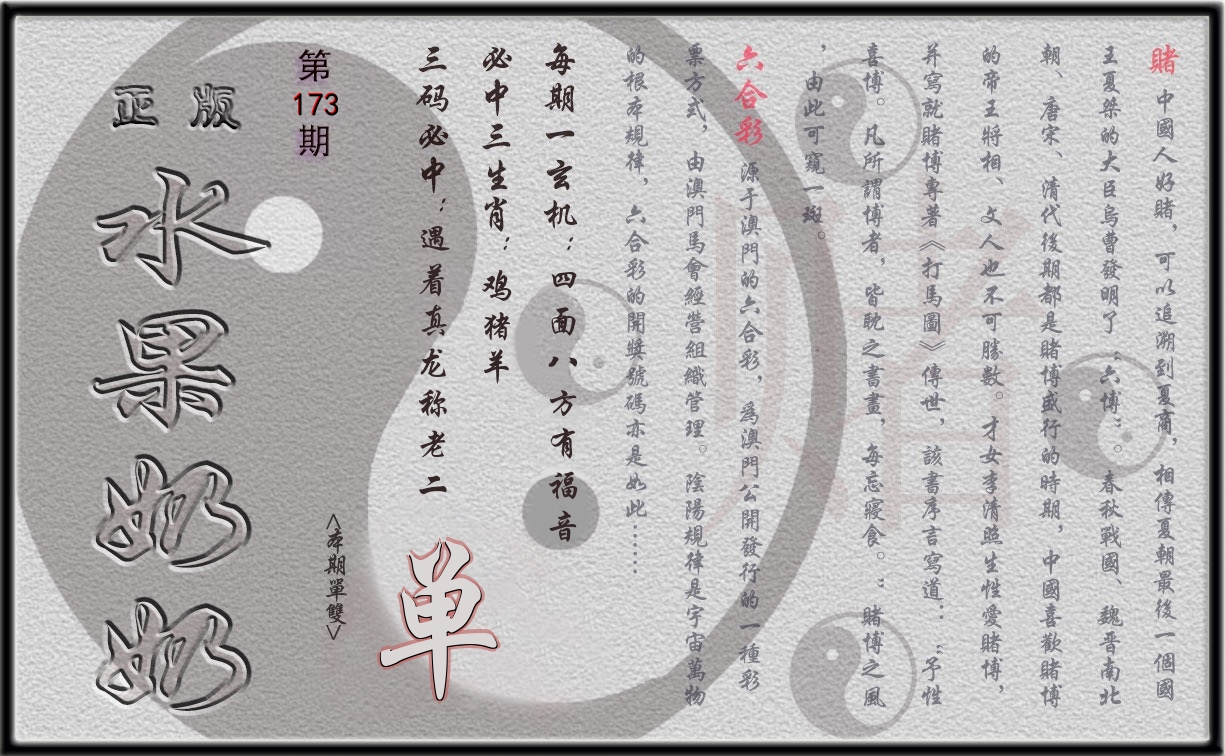 賭 中國人好賭，可以追溯到夏商，相傳夏朝最後一個國
王夏桀的大臣烏曹發明了“六博”。春秋戰國、魏晋南北
朝、唐宋、清代後期都是賭博盛行的時期，中國喜歡賭博
的帝王將相、文人也不可勝數。才女李清照生性愛賭博，
并寫就賭博專著《打馬圖》傳世，該書序言寫道：“予性
喜博。凡所謂博者，皆耽之書畫，每忘寢食。”賭博之風
，由此可窺一斑。
六合彩 源于澳門的六合彩，爲澳門公開發行的一種彩
票方式，由澳門馬會經營組織管理。陰陽規律是宇宙萬物
的根本規律，六合彩的開獎號碼亦是如此……
每期一玄机：四面八方有福音
必中三生肖：鸡猪羊
三码必中：遇着真龙称老二
单
<本期單雙>
第
173
期
正版
水果奶奶
賭